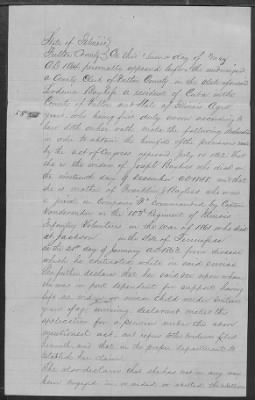 State of Illinois
Fulton County On this second day of May
A.D. 1864, personally appeared before the undersigned
a County Clerk of Fulton County in the state aforesaid
a resident of Cuba in the
County of Fulton and State of Illinois aged
58 years who being first duly sworn according to
law doth on her oath make the following declaration
in order to obtain the benefits of the pensions made
by the act of Congress approved July 14 1862: that
she is the widow of Joseph who died on
the nineteenth day of December A.D. 1848 and that
she is mother of Franklin who was
a private in Company "H" Commanded by Captain
in the 103rd Regiment of Illinois
Infantry Volunteers in the war of 1861 who died
at Jackson in the State of Tennessee
on the day of January A.D. 1863 from disease
which he contracted while in said service
She further declares that her said son upon whom
she was in part dependent for support having
left no widow or minor child under sixteen
years of age surviving declarant makes this
application for a pension under the above
mentioned act, and refers to the evidence filed
herewith and that in the proper department to
establish her claim
She also declares that she has not in any way
been engaged in, or aided or abetted, the rebellion